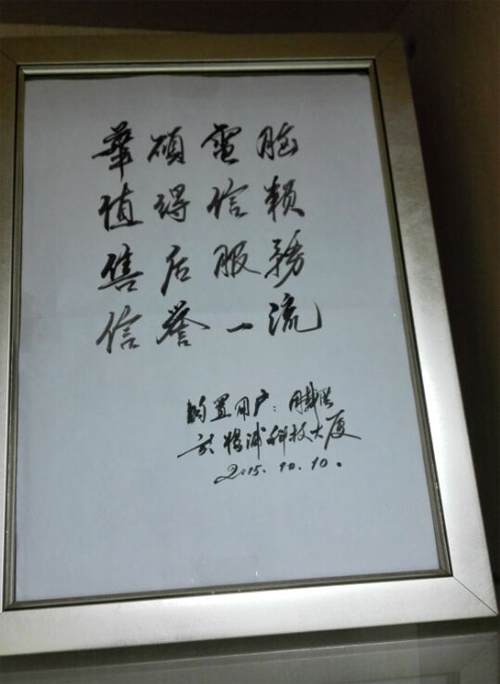 華碩電脑
值得信赖
售后服務
信誉一流
購置用户：
於楊浦科技大厦
2015.10.10.